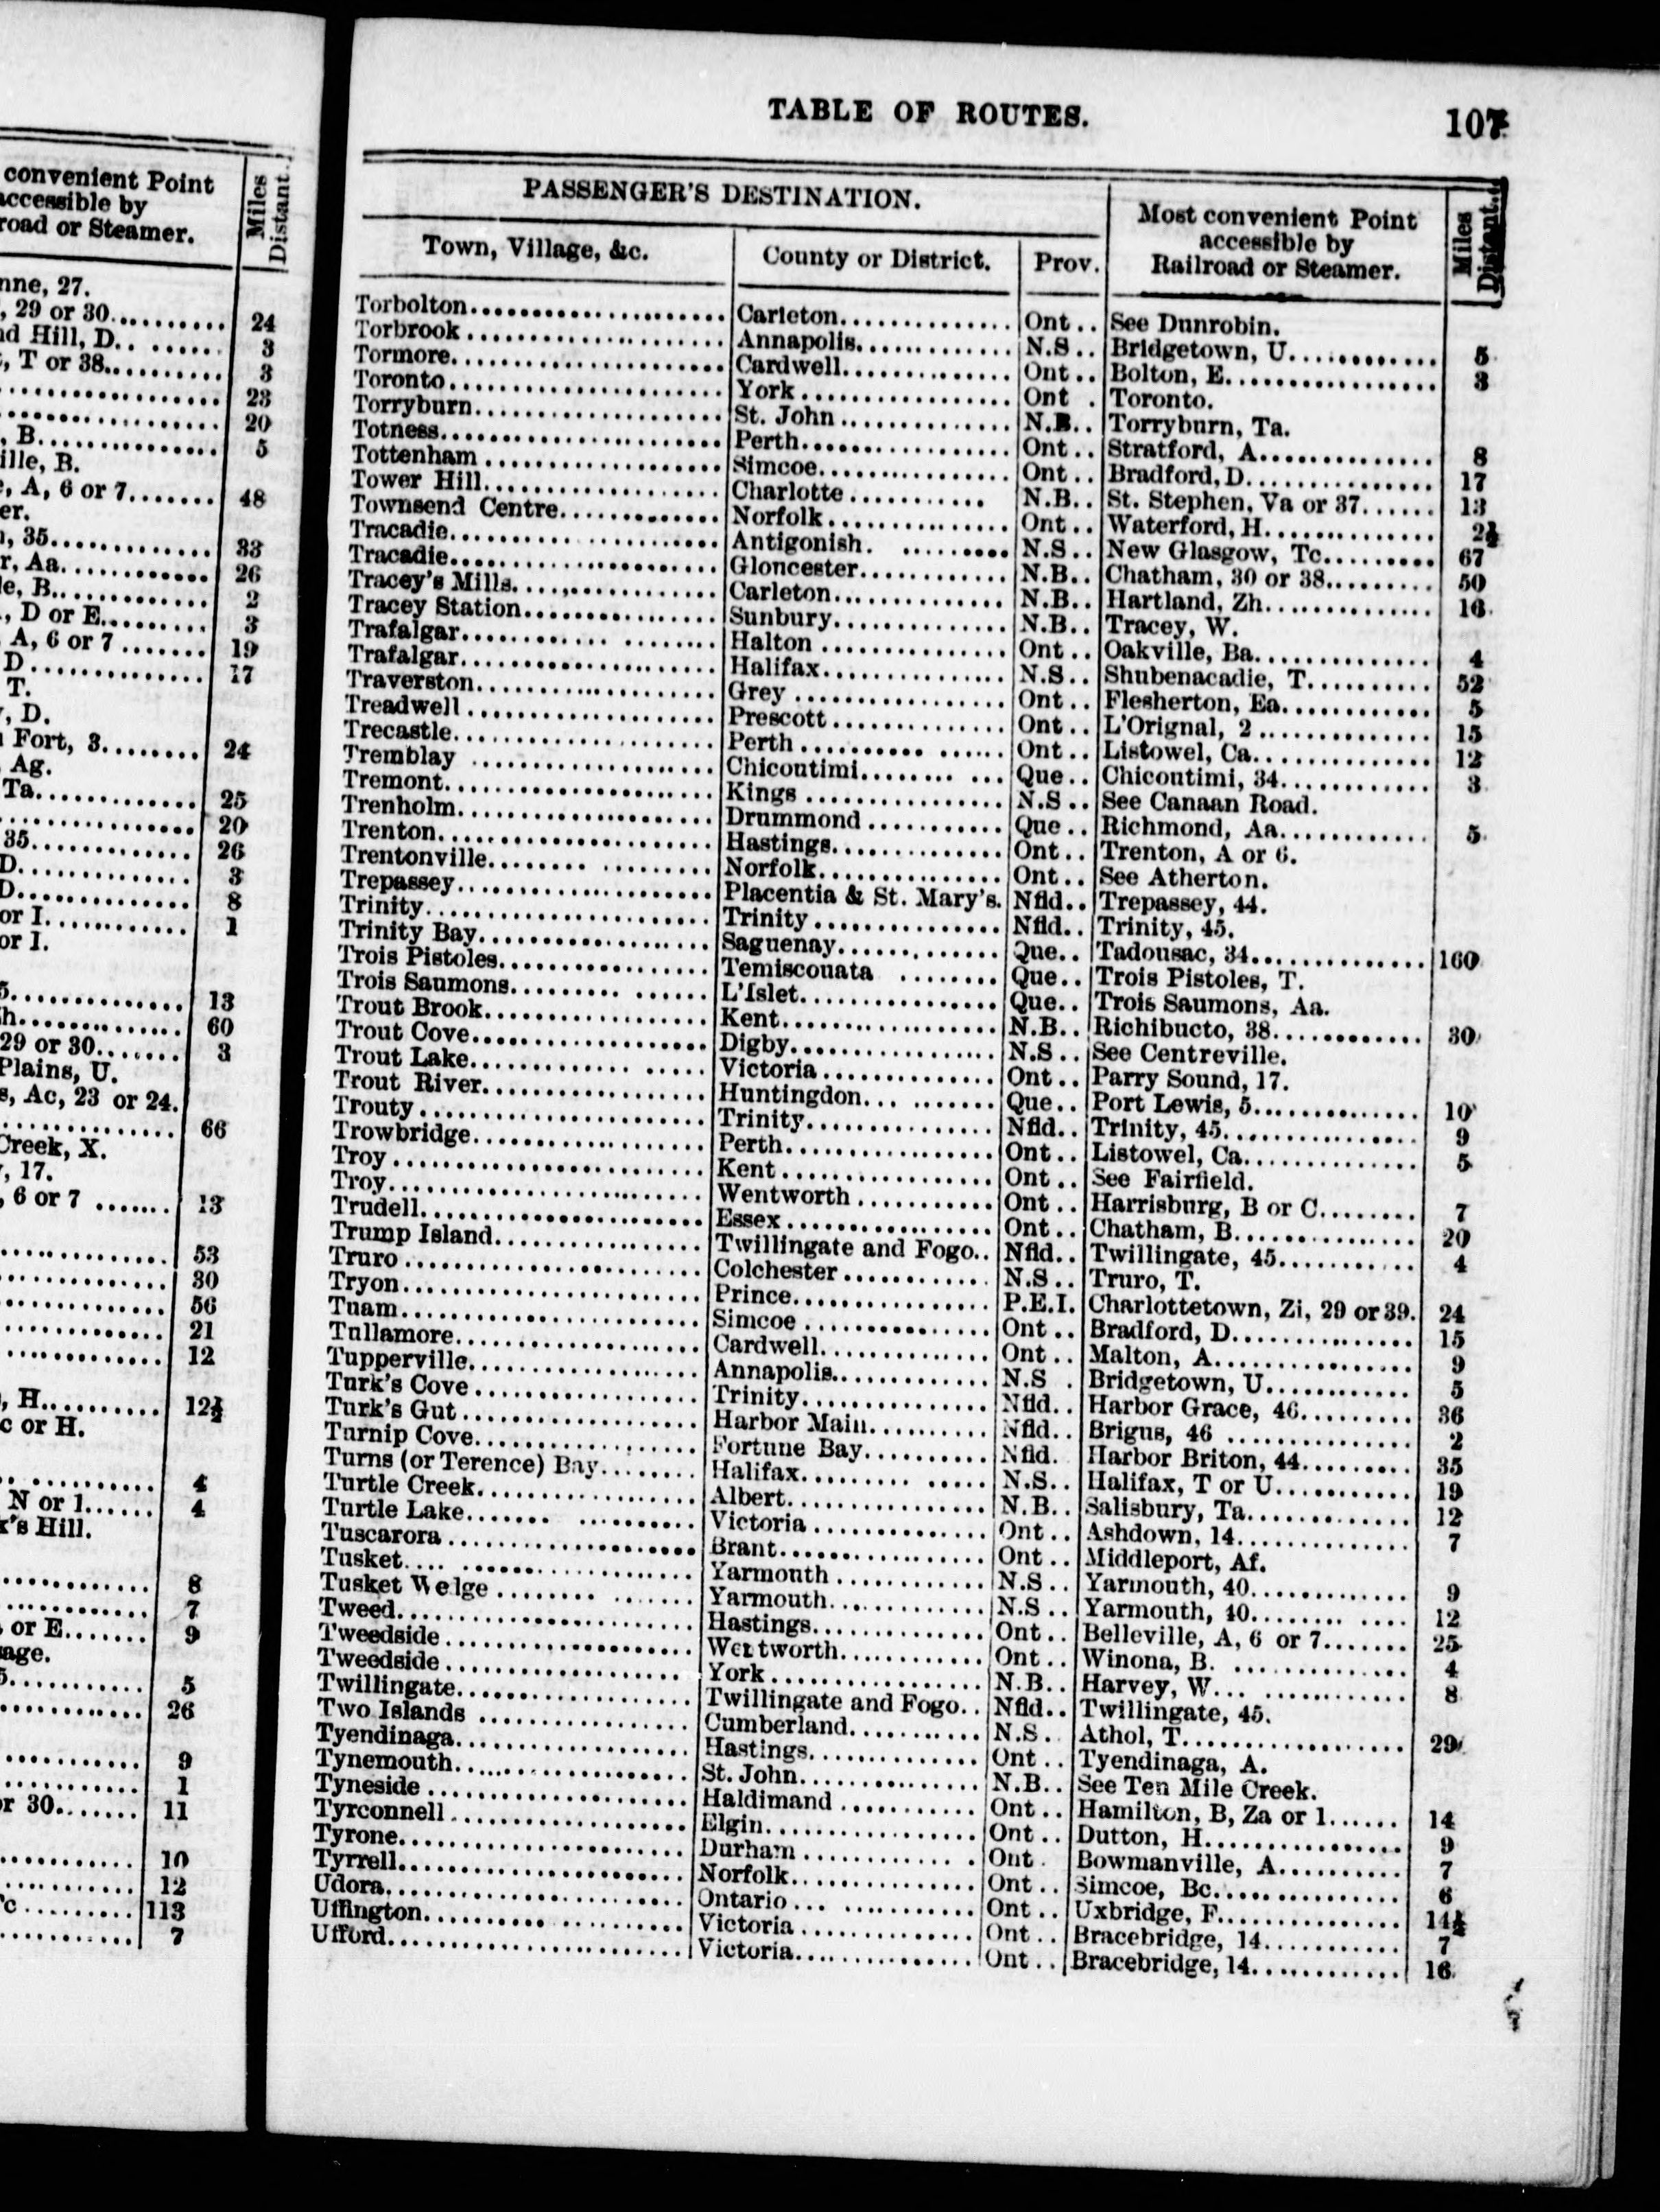 convenient Point
accessible by
road or Steamer.
Miles
Distant.
nne, 27.
, 29 or 30.......... 24
nd Hill, D.. ...... 3
, T or 38.......... 3
.................. 23
.................. 20
, B............... 5
ille, B.
, A, 6 or 7....... 48
er.
, 35............. 33
r, Aa............ 26
le, B............. 2
., D or E......... 3
A, 6 or 7 ....... 19
D............... 17
T.
, D.
Fort, 3........ 24
Ag.
Ta............. 25
................ 20
35.............. 26
D.............. 3
D.............. 8
or I............ 1
or I.
5............... 13
h.............. 60
29 or 30....... 3
Plains, U.
s, Ac, 23 or 24.
............... 66
Creek, X.
, 17.
, 6 or 7 ....... 13
.............. 53
.............. 30
.............. 56
.............. 21
.............. 12
, H.......... 12½
c or H.
............ 4
N or 1...... 4
k's Hill.
............. 8
............. 7
or E....... 9
age.
5........... 5
............ 26
............ 9
............ 1
or 30....... 11
............ 10
............ 12
c ......... 113
............ 7
TABLE OF ROUTES. 107
PASSENGER'S DESTINATION. Most convenient Point accessible by Railroad or Steamer. Miles Distant.
Town, Village, &c. County or District. Prov.
Torbolton........ Carleton........ Ont.. See Dunrobin.
Torbrook........ Annapolis........ N.S.. Bridgetown, U........ 5
Tormore........ Cardwell........ Ont.. Bolton, E........ 3
Toronto........ York........ Ont . Toronto.
Torryburn........ St. John........ N.B.. Torryburn, Ta.
Totness........ Perth........ Ont.. Stratford, A........ 8
Tottenham........ Simcoe........ Ont.. Bradford, D........ 17
Tower Hill........ Charlotte........ N.B.. St. Stephen, Va or 37...... 13
Townsend Centre........ Norfolk........ Ont.. Waterford, H........ 2½
Tracadie........ Antigonish. ........ N.S.. New Glasgow, Tc........ 67
Tracadie........ Gloncester........ N.B.. Chatham, 30 or 38........ 50
Tracey's Mills........ Carleton........ N.B.. Hartland, Zh........ 16
Tracey Station........ Sunbury........ N.B.. Tracey, W.
Trafalgar........ Halton........ Ont.. Oakville, Ba........ 4
Trafalgar........ Halifax........ N.S.. Shubenacadie, T........ 52
Traverston........ Grey........ Ont.. Flesherton, Ea........ 5
Treadwell........ Prescott........ Ont.. L'Orignal, 2........ 15
Trecastle........ Perth........ Ont.. Listowel, Ca........ 12
Tremblay........ Chicoutimi........ Que.. Chicoutimi, 34........ 3
Tremont........ Kings........ N.S.. See Canaan Road.
Trenholm........ Drummond........ Que.. Richmond, Aa........ 5
Trenton........ Hastings........ Ont.. Trenton, A or 6.
Trentonville........ Norfolk........ Ont.. See Atherton.
Trepassey........ Placentia & St. Mary's. Nfld.. Trepassey, 44.
Trinity........ Trinity........ Nfld.. Trinity, 45.
Trinity Bay........ Saguenay........ Que.. Tadousac, 34........ 160
Trois Pistoles........ Temiscouata ........ Que.. Trois Pistoles, T.
Trois Saumons........ L'Islet........ Que.. Trois Saumons, Aa.
Trout Brook........ Kent........ N.B.. Richibucto, 38........ 30
Trout Cove........ Digby........ N.S.. See Centreville.
Trout Lake........ Victoria........ Ont.. Parry Sound, 17.
Trout River........ Huntingdon........ Que.. Port Lewis, 5........ 10
Trouty........ Trinity........ Nfld.. Trinity, 45........ 9
Trowbridge........ Perth........ Ont.. Listowel, Ca........ 5
Troy........ Kent........ Ont.. See Fairfield.
Troy........ Wentworth........ Ont.. Harrisburg, B or C........ 7
Trudell........ Essex........ Ont.. Chatham, B........ 20
Trump Island........ Twillingate and Fogo.. Nfld.. Twillingate, 45........ 4
Truro........ Colchester........ N.S.. Truro, T.
Tryon........ Prince........ P.E.I. Charlottetown, Zi, 29 or 39. 24
Tuam........ Simcoe........ Ont.. Bradford, D........ 15
Tullamore........ Cardwell........ Ont.. Malton, A........ 9
Tupperville........ Annapolis........ N.S . Bridgetown, U........ 5
Turk's Cove........ Trinity........ Nfld.. Harbor Grace, 46........ 36
Turk's Gut........ Harbor Main........ Nfld.. Brigus, 46........ 2
Turnip Cove........ Fortune Bay........ Nfld. Harbor Briton, 44........ 35
Turns (or Terence) Bay........ Halifax........ N.S.. Halifax, T or U........ 19
Turtle Creek........ Albert........ N.B.. Salisbury, Ta........ 12
Turtle Lake........ Victoria........ Ont.. Ashdown, 14........ 7
Tuscarora........ Brant........ Ont.. Middleport, Af.
Tusket........ Yarmouth........ N.S.. Yarmouth, 40........ 9
Tusket Welge........ Yarmouth........ N.S.. Yarmouth, 40........ 12
Tweed........ Hastings........ Ont.. Belleville, A, 6 or 7....... 25
Tweedside........ Wentworth........ Ont.. Winona, B. ........ 4
Tweedside........ York........ N.B.. Harvey, W........ 8
Twillingate........ Twillingate and Fogo.. Nfld.. Twillingate, 45.
Two Islands........ Cumberland........ N.S. Athol, T........ 29
Tyendinaga........ Hastings........ Ont.. Tyendinaga, A.
Tynemouth........ St. John........ N.B.. See Ten Mile Creek.
Tyneside........ Haldimand........ Ont.. Hamilton, B, Za or 1...... 14
Tyrconnell........ Elgin........ Ont.. Dutton, H........ 9
Tyrone........ Durham........ Ont. Bowmanville, A........ 7
Tyrrell........ Norfolk........ Ont.. Simcoe, Bc........ 6
Udora........ Ontario........ Ont.. Uxbridge, F........ 14½
Uffington........ Victoria........ Ont.. Bracebridge, 14........ 7
Ufford........ Victoria........ Ont.. Bracebridge, 14........ 16